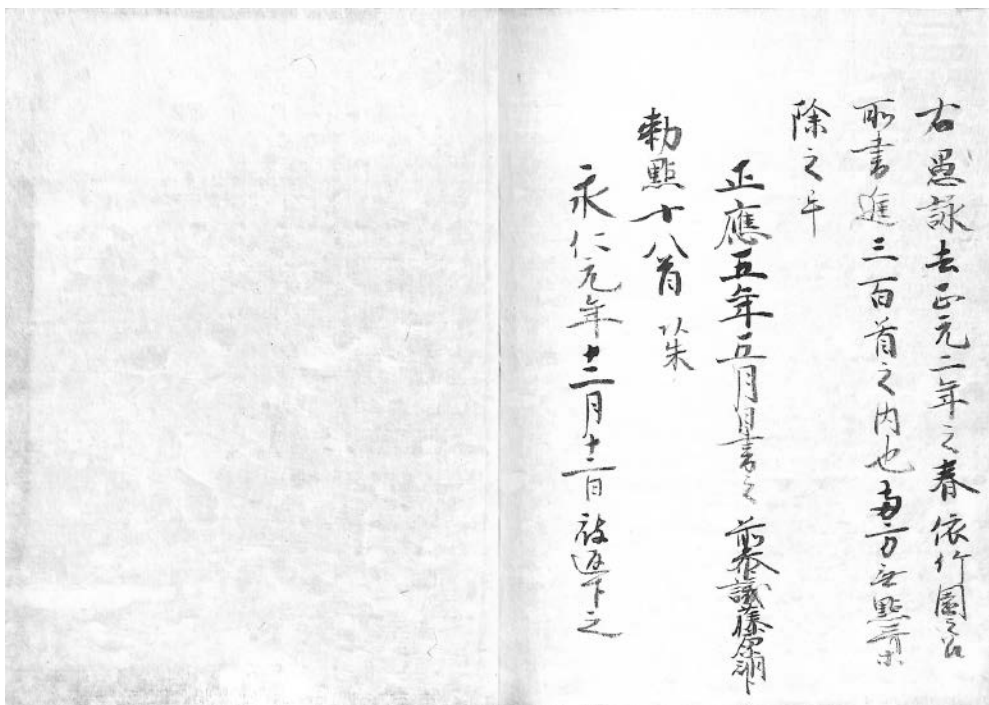 右愚詠去正元二年之春依竹園之召
所書進三百首之内也両方無點哥等
除之畢
正應五年五月日書之 前参議藤
勅點十八首 以朱
永仁元年十二月十二日被返下之